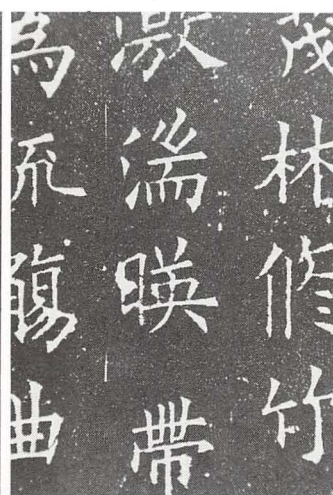 茂林修竹
激湍暎帶
為流觴曲